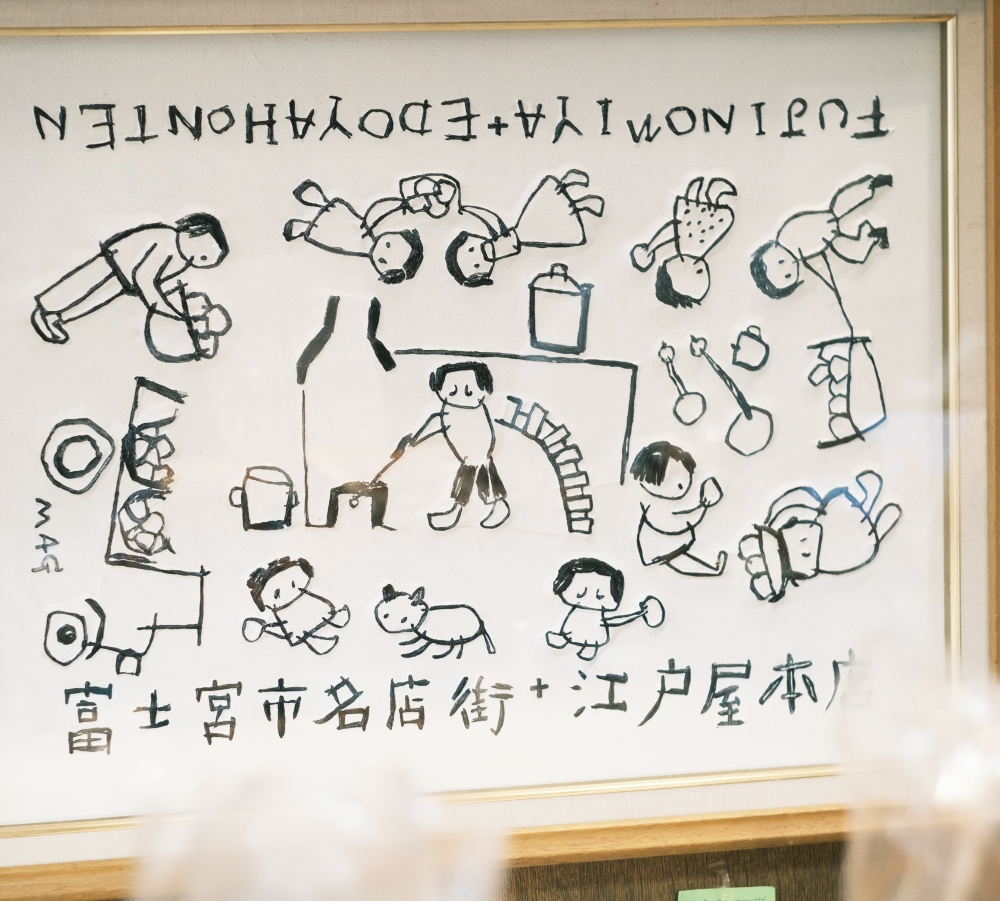 FUJINOMIYA+EDOYAHONTEN
MAG
富士宮市名店街+江戸屋本店